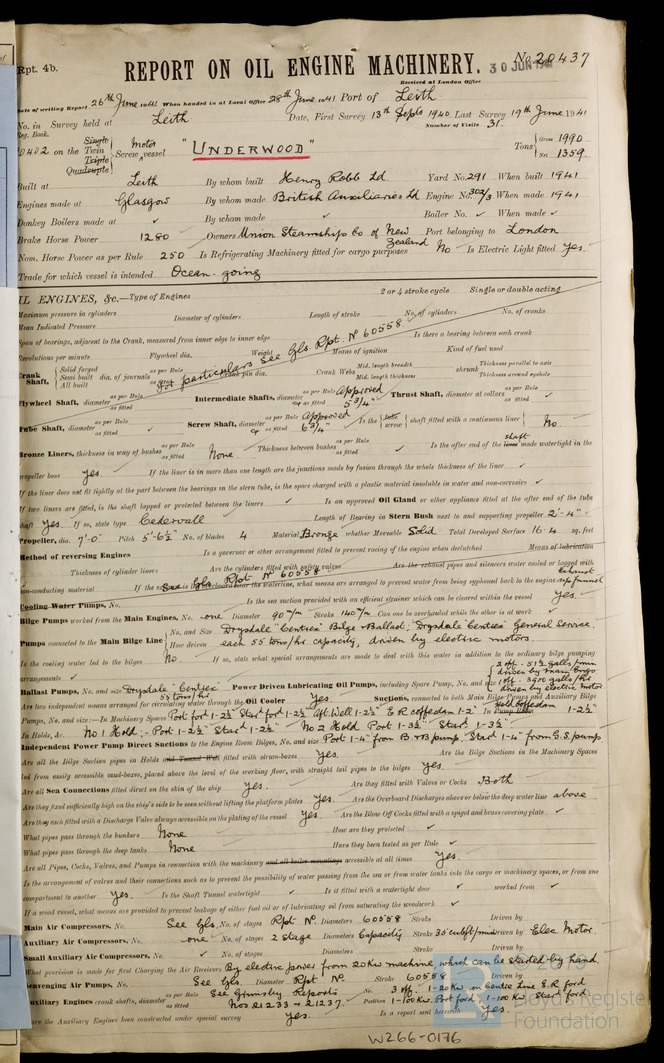 Rpt. 4b.
REPORT ON OIL ENGINE MACHINERY.
No. 20437
30 JUN 1941
Received at London Office
Date of writing Report 26th June 1941 When handed in at Local Office 28th June 1941 Port of Leith
No. in Survey held at Leith Date, First Survey 13th Septr 1940 Last Survey 19th June 1941
Reg. Book. Number of Visits 31
on the Single Twin Triple Quadruple Screw vessel Motor "UNDERWOOD" Tons Gross 1990 Net 1359
Built at Leith By whom built Henry Robb Ld Yard No. 291 When built 1941
Engines made at Glasgow By whom made British Auxiliaries Ld Engine No. 302/3 When made 1941
Donkey Boilers made at ✓ By whom made ✓ Boiler No. ✓ When made ✓
Brake Horse Power 1280 Owners Union Steamships Co of New Zealand Port belonging to London
Nom. Horse Power as per Rule 250 Is Refrigerating Machinery fitted for cargo purposes No Is Electric Light fitted Yes.
Trade for which vessel is intended Ocean-going
OIL ENGINES, &c.—Type of Engines 2 or 4 stroke cycle Single or double acting
Maximum pressure in cylinders Diameter of cylinders Length of stroke No. of cylinders No. of cranks
Mean Indicated Pressure
Span of bearings, adjacent to the Crank, measured from inner edge to inner edge Is there a bearing between each crank
For particulars see Gls. Rpt. No 60558
Revolutions per minute Flywheel dia. Weight Means of ignition Kind of fuel used
Crank Shaft, Solid forged Semi built All built dia. of journals as per Rule as fitted Crank pin dia. Crank Webs Mid. length breadth Mid. length thickness shrunk Thickness parallel to axis Thickness around eyehole
Flywheel Shaft, diameter as per Rule as fitted Intermediate Shafts, diameter as per Rule Approved as fitted 5 3/4" Thrust Shaft, diameter at collars as per Rule as fitted ✓
Tube Shaft, diameter as per Rule as fitted ✓ Screw Shaft, diameter as per Rule Approved as fitted 6 3/4" Is the tube screw shaft fitted with a continuous liner No.
Bronze Liners, thickness in way of bushes as per Rule as fitted None. Thickness between bushes as per Rule as fitted ✓ Is the after end of the liner shaft made watertight in the
propeller boss Yes. If the liner is in more than one length are the junctions made by fusion through the whole thickness of the liner ✓
If the liner does not fit tightly at the part between the bearings in the stern tube, is the space charged with a plastic material insoluble in water and non-corrosive ✓
If two liners are fitted, is the shaft lapped or protected between the liners ✓ Is an approved Oil Gland or other appliance fitted at the after end of the tube
shaft Yes. If so, state type Cedervall Length of Bearing in Stern Bush next to and supporting propeller 2'-4" ✓
Propeller, dia. 7'-0" Pitch 5'-6½" No. of blades 4 Material Bronze whether Moveable Solid Total Developed Surface 16.4 sq. feet
Method of reversing Engines Is a governor or other arrangement fitted to prevent racing of the engine when declutched Means of lubrication
Thickness of cylinder liners Are the cylinders fitted with safety valves Are the exhaust pipes and silencers water cooled or lagged with
See Gls. Rpt No 60558
non-conducting material If the exhaust is overboard near the waterline, what means are arranged to prevent water from being syphoned back to the engine exhaust up funnel
Cooling Water Pumps, No. Is the sea suction provided with an efficient strainer which can be cleared within the vessel Yes.
Bilge Pumps worked from the Main Engines, No. one Diameter 90 m/m Stroke 140 m/m Can one be overhauled while the other is at work ✓
Pumps connected to the Main Bilge Line No. and Size Drysdale "Centrex" Bilge & Ballast, Drysdale "Centrex" General Service.
How driven each 55 tons/hr capacity, driven by electric motors.
Is the cooling water led to the bilges No. If so, state what special arrangements are made to deal with this water in addition to the ordinary bilge pumping
arrangements ✓
Ballast Pumps, No. and size Drysdale "Centrex" 55 tons/hr Power Driven Lubricating Oil Pumps, including Spare Pump, No. and size
Are two independent means arranged for circulating water through the Oil Cooler Yes Suctions, connected to both Main Bilge Pumps and Auxiliary Bilge
Pumps, No. and size:—In Machinery Spaces Port ford 1-2½" Starbd ford 1-2½" Aft. Well 1-2½" E.R cofferdam 1-2" In Pump Room Hold cofferdam 1-2½"
In Holds, &c. No 1 Hold:- Port 1-2½" Starbd 1-2½" No 2 Hold Port 1-3½" Starbd 1-3½"
Independent Power Pump Direct Suctions to the Engine Room Bilges, No. and size Port 1-4" from B & B pump. Starbd 1-4" from G.S. pump
Are all the Bilge Suction pipes in Holds and Tunnel Well fitted with strum-boxes Yes. Are the Bilge Suctions in the Machinery Spaces
led from easily accessible mud-boxes, placed above the level of the working floor, with straight tail pipes to the bilges Yes.
Are all Sea Connections fitted direct on the skin of the ship Yes. Are they fitted with Valves or Cocks Both
Are they fixed sufficiently high on the ship's side to be seen without lifting the platform plates Yes. Are the Overboard Discharges above or below the deep water line above
Are they each fitted with a Discharge Valve always accessible on the plating of the vessel Yes. Are the Blow Off Cocks fitted with a spigot and brass covering plate ✓
What pipes pass through the bunkers None How are they protected ✓
What pipes pass through the deep tanks None Have they been tested as per Rule ✓
Are all Pipes, Cocks, Valves, and Pumps in connection with the machinery and all boiler mountings accessible at all times Yes.
Is the arrangement of valves and their connections such as to prevent the possibility of water passing from the sea or from water tanks into the cargo or machinery spaces, or from one
compartment to another Yes. Is the Shaft Tunnel watertight ✓ Is it fitted with a watertight door ✓ worked from ✓
If a wood vessel, what means are provided to prevent leakages of either fuel oil or of lubricating oil from saturating the woodwork ✓
Main Air Compressors, No. See Gls. No. of stages Rpt No. Diameters 60558 Stroke Driven by
Auxiliary Air Compressors, No. one No. of stages 2 Stage Diameters Capacity Stroke 35 cubft/min Driven by Elec Motor.
Small Auxiliary Air Compressors, No. ✓ No. of stages Diameters Stroke Driven by
What provision is made for first Charging the Air Receivers By electric power from 20Kw machine, which can be started by hand.
Scavenging Air Pumps, No. See Gls. Diameter Rpt No. Stroke 60558 Driven by
Auxiliary Engines crank shafts, diameter as per Rule as fitted See Grimsby Reports Nos 21233 & 21237. No. 3 off. 1-20Kw. on Centre Line E.R ford
Position 1-100Kw. Port ford, 1-100Kw. Starbd ford
Have the Auxiliary Engines been constructed under special survey Yes. Is a report sent herewith Yes.
© 2019
Lloyd's Register
Foundation
W266-0176